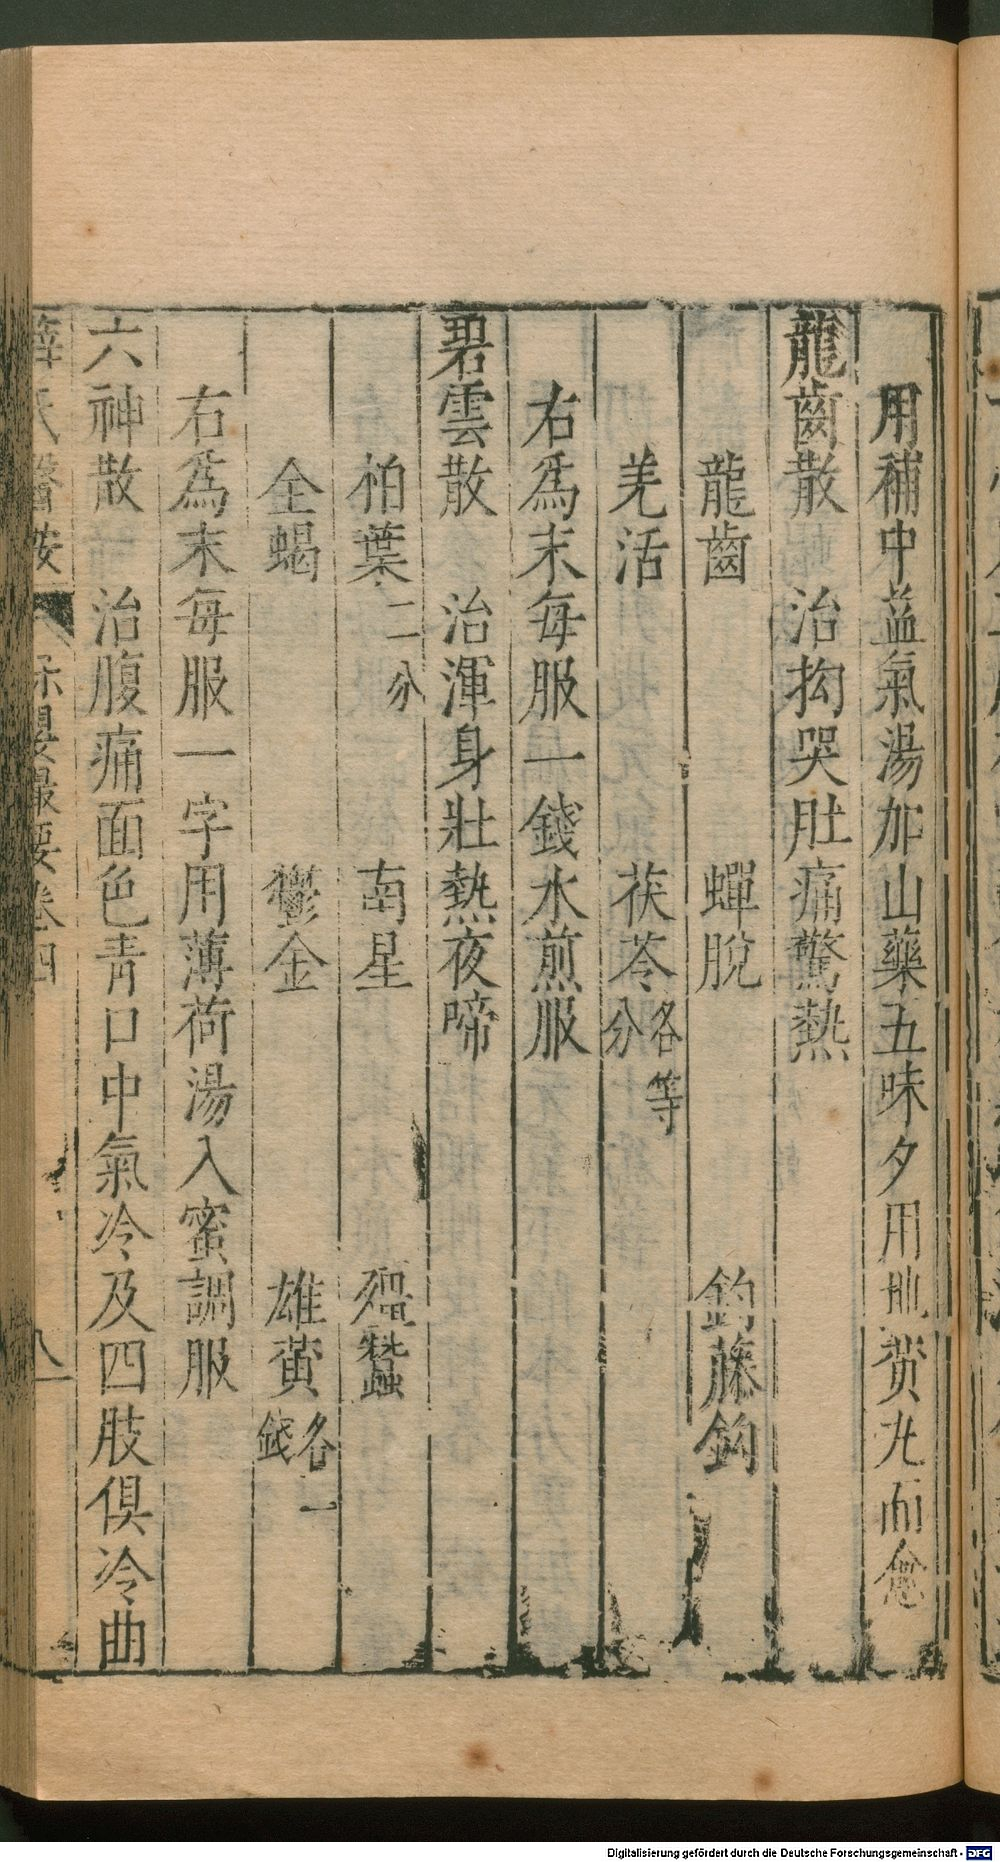 用補中益氣湯加山藥五味夕用地黄丸而愈
龍齒散　治抅哭肚痛驚熱
龍齒　蟬脫　鈎藤鈎
羌活　茯苓各等分
右為末每服一錢水煎服
碧雲散　治渾身壯熱夜啼
柏葉二分　南星　殭蠶
全蝎　鬱金　雄黄各一錢
右為末每服一字用薄荷湯入蜜調服
六神散　治腹痛面色青口中氣冷及四肢俱冷曲
薛氏醫按　保嬰撮要卷四　八
Digitalisierung gefördert durch die Deutsche Forschungsgemeinschaft - DFG